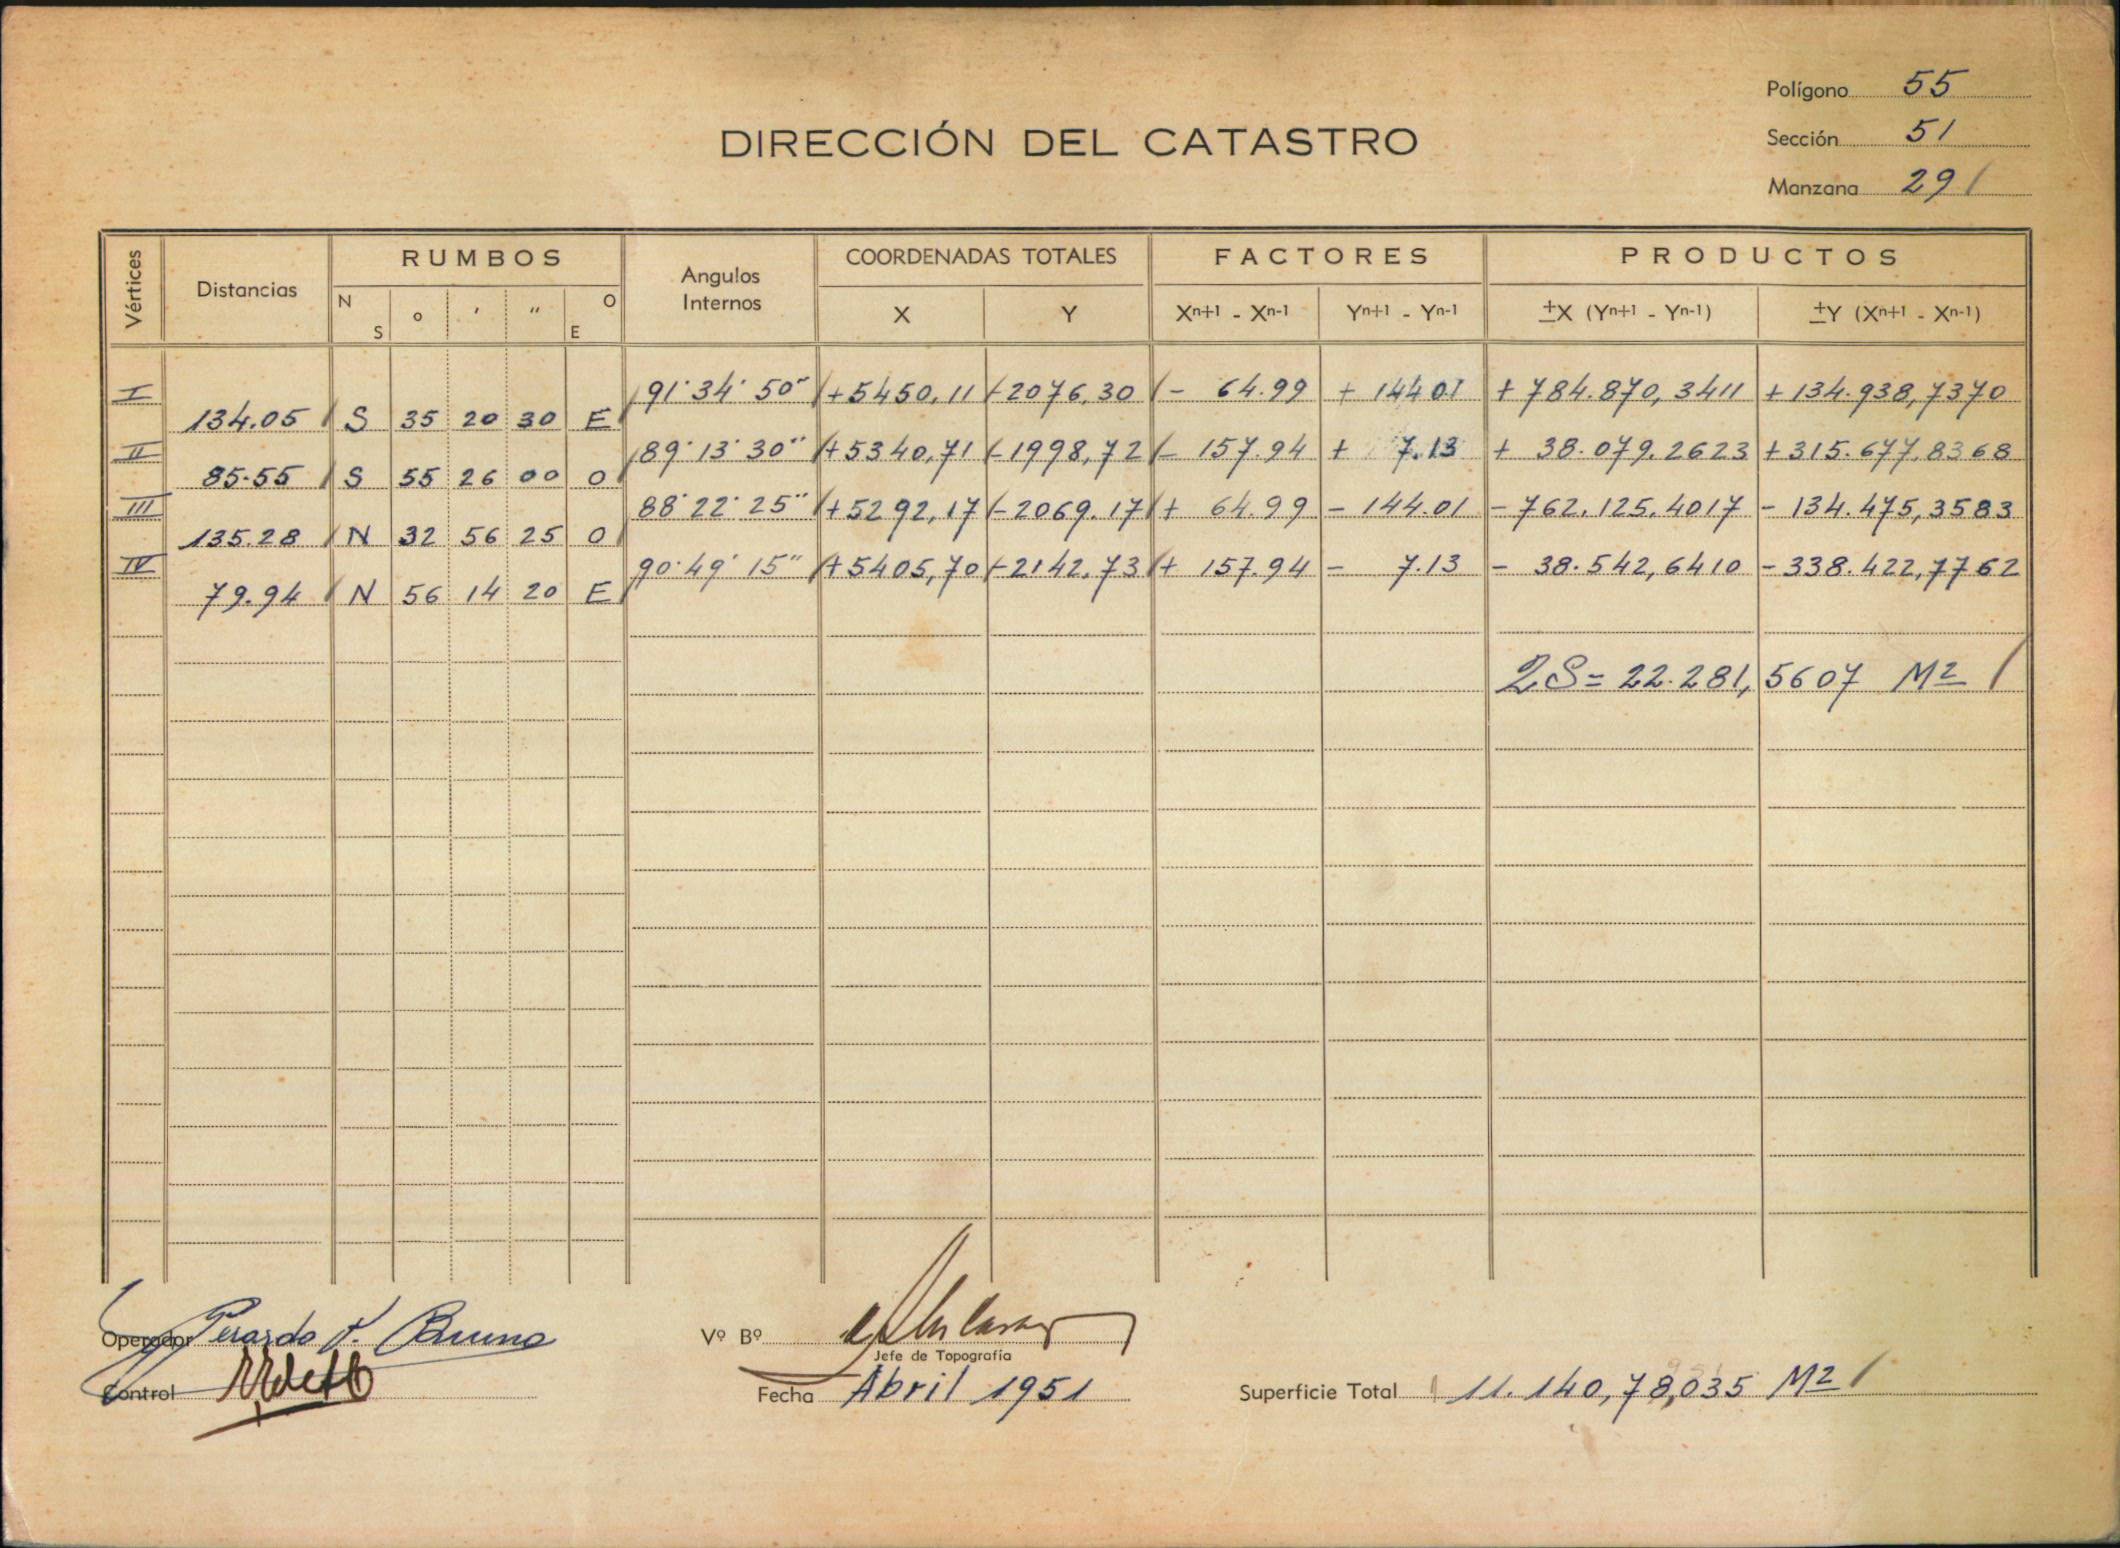 Polígono 55
DIRECCIÓN DEL CATASTRO
Sección 51
Manzana 29
Vértices Distancias RUMBOS Angulos Internos COORDENADAS TOTALES FACTORES PRODUCTOS
N S o ' " O E X Y Xn+1 - Xn-1 Yn+1 - Yn-1 ±X (Yn+1 - Yn-1) ±Y (Xn+1 - Xn-1)
I 91° 34' 50" +5450,11 -2076,30 - 64.99 + 144.01 + 784.870,3411 + 134.938,7370
134.05 S 35 20 30 E
II 89° 13' 30" +5340,71 -1998,72 - 157.94 + 7.13 + 38.079.2623 +315.677,8368
85.55 S 55 26 00 O
III 88° 22' 25" +5292,17 -2069.17 + 64.99 - 144.01 - 762.125.4017 - 134.475,3583
135.28 N 32 56 25 O
IV 90° 49' 15" +5405,70 -2142,73 + 157.94 - 7.13 - 38.542,6410 - 338.422,7762
79.94 N 56 14 20 E
2S = 22.281,5607 M2
Operador F. Bruno
Vº Bº
Jefe de Topografía
Control
Fecha Abril 1951
Superficie Total 11.140,78,035 M2